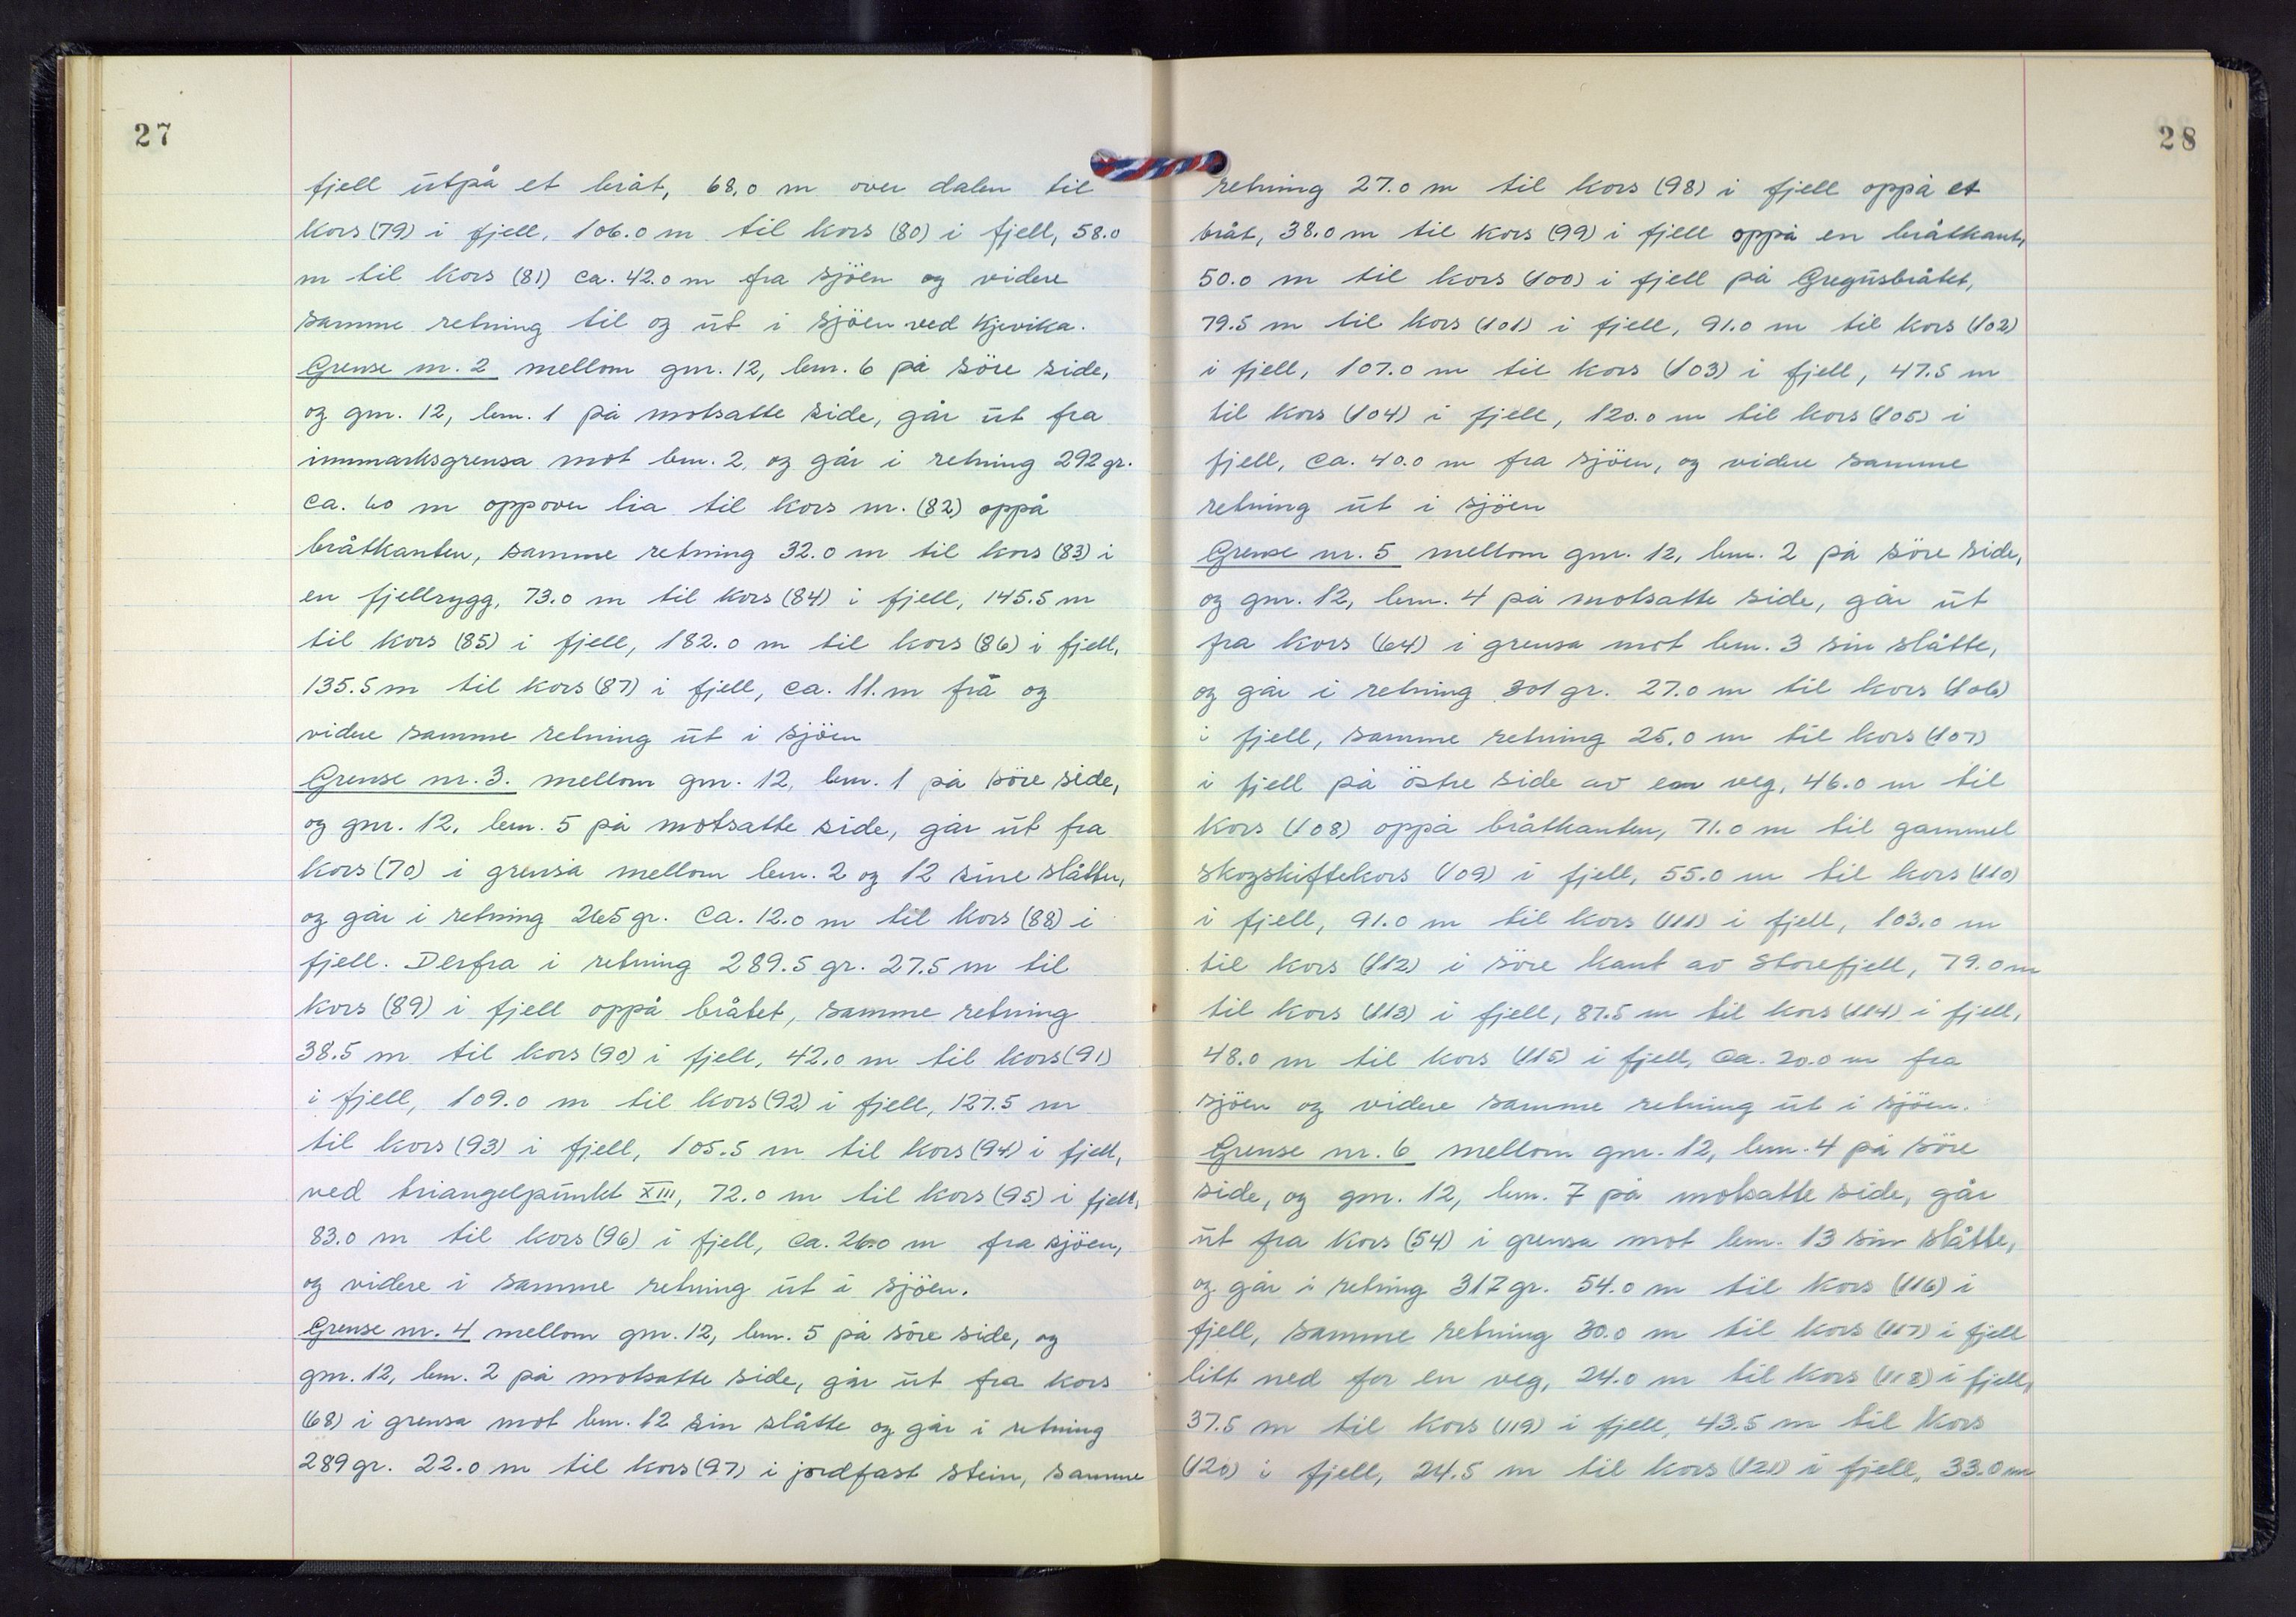 27
fjell utpå et bråt, 68.0 m over dalen til
kors (79) i fjell, 106.0 m til kors (80) i fjell, 58.0
m til kors (81) ca. 42.0 m fra sjöen og videre
samme retning til og ut i sjöen ved Kjevika.
Grense nr. 2 mellom gnr. 12, bnr. 6 på söre side,
og gnr. 12, bnr. 1 på motsatte side, går ut fra
innmarksgrensa mot bnr. 2, og går i retning 292 gr.
ca. 60 m oppover lia til kors nr. (82) oppå
bråtkanten, samme retning 32.0 m til kors (83) i
en fjellrygg, 73.0 m til kors (84) i fjell, 145.5 m
til kors (85) i fjell, 182.0 m til kors (86) i fjell,
135.5 m til kors (87) i fjell, ca. 11.m frå og
videre samme retning ut i sjöen
Grense nr. 3. mellom gnr. 12, bnr. 1 på söre side,
og gnr. 12, bnr. 5 på motsatte side, går ut fra
kors (70) i grensa mellom bnr. 2 og 12 sine slåtter,
og går i retning 265 gr. ca. 12.0 m til kors (88) i
fjell. Derfra i retning 289.5 gr. 27.5 m til
kors (89) i fjell oppå bråtet, samme retning
38.5 m til kors (90) i fjell, 42.0 m til kors (91)
i fjell, 109.0 m til kors (92) i fjell, 127.5 m
til kors (93) i fjell, 105.5 m til kors (94) i fjell,
ved triangelpunkt XIII, 72.0 m til kors (95) i fjell,
83.0 m til kors (96) i fjell, ca. 26.0 m fra sjöen,
og videre i samme retning ut i sjöen.
Grense nr. 4 mellom gnr. 12, bnr. 5 på söre side, og
gnr. 12, bnr. 2 på motsatte side, går ut fra kors
(68) i grensa mot bnr. 12 sin slåtte og går i retning
289 gr. 22.0 m til kors (97) i jordfast stein, samme
28
retning 27.0 m til kors (98) i fjell oppå et
bråt, 38.0 m til kors (99) i fjell oppå en bråtkant,
50.0 m til kors (100) i fjell på Gregusbråtet,
79.5 m til kors (101) i fjell, 91.0 m til kors (102)
i fjell, 107.0 m til kors (103) i fjell, 47.5 m
til kors (104) i fjell, 120.0 m til kors (105) i
fjell, ca. 40.0 m fra sjöen, og videre samme
retning ut i sjöen
Grense nr. 5 mellom gnr. 12, bnr. 2 på söre side,
og gnr. 12, bnr. 4 på motsatte side, går ut
fra kors (64) i grensa mot bnr. 3 sin slåtte,
og går i retning 301 gr. 27.0 m til kors (106)
i fjell, samme retning 25.0 m til kors (107)
i fjell på östre side av en veg, 46.0 m til
kors (108) oppå bråtkanten, 71.0 m til gammel
skogskiftekors (109) i fjell, 55.0 m til kors (110)
i fjell, 91.0 m til kors (111) i fjell, 103.0 m
til kors (112) i söre kant av Storefjell, 79.0 m
til kors (113) i fjell, 87.5 m til kors (114) i fjell,
48.0 m til kors (115) i fjell, ca. 20.0 m fra
sjöen og videre samme retning ut i sjöen.
Grense nr. 6 mellom gnr. 12, bnr. 4 på söre
side, og gnr. 12, bnr. 7 på motsatte side, går
ut fra kors (54) i grensa mot bnr. 13 sin slåtte,
og går i retning 317 gr. 54.0 m til kors (116) i
fjell, samme retning 30.0 m til kors (117) i fjell
litt ned for en veg, 24.0 m til kors (118) i fjell,
37.5 m til kors (119) i fjell, 43.5 m til kors
(120) i fjell, 24.5 m til kors (121) i fjell, 33.0 m